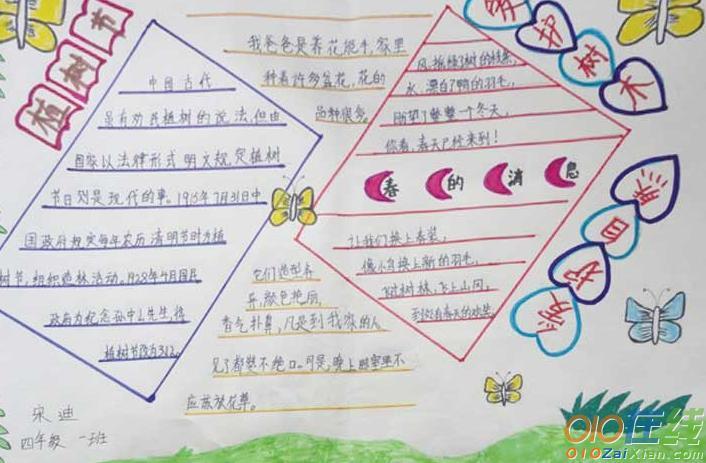 植树节
中国古代
虽有劝民植树的说法,但由
国家以法律形式明文规定植树
节日则是现代的事。1915年7月31日中
国政府规定每年农历清明节时为植
树节,组织造林活动。1928年4月国民
政府为纪念孙中山先生,将
植树节改为3.12。
我爸爸是养花能手,家里
种着许多盆花,花的
品种很多。
它们造型各
异,颜色艳丽,
香气扑鼻,凡是到我家的人
见了都赞不绝口。可是,晚上卧室里不
应该放花草。
风,梳绿了树的枝条,
水,漂白了鸭的羽毛,
盼望了整整一个冬天,
你看,春天已经来到!
春的消息
让我们换上春装,
像小鸟换上新的羽毛,
飞过树林,飞上山冈,
到处有春天的欢笑。
爱护树木
爱护自然
宋迪
四年级 一班
010在线
010ZaiXian.com